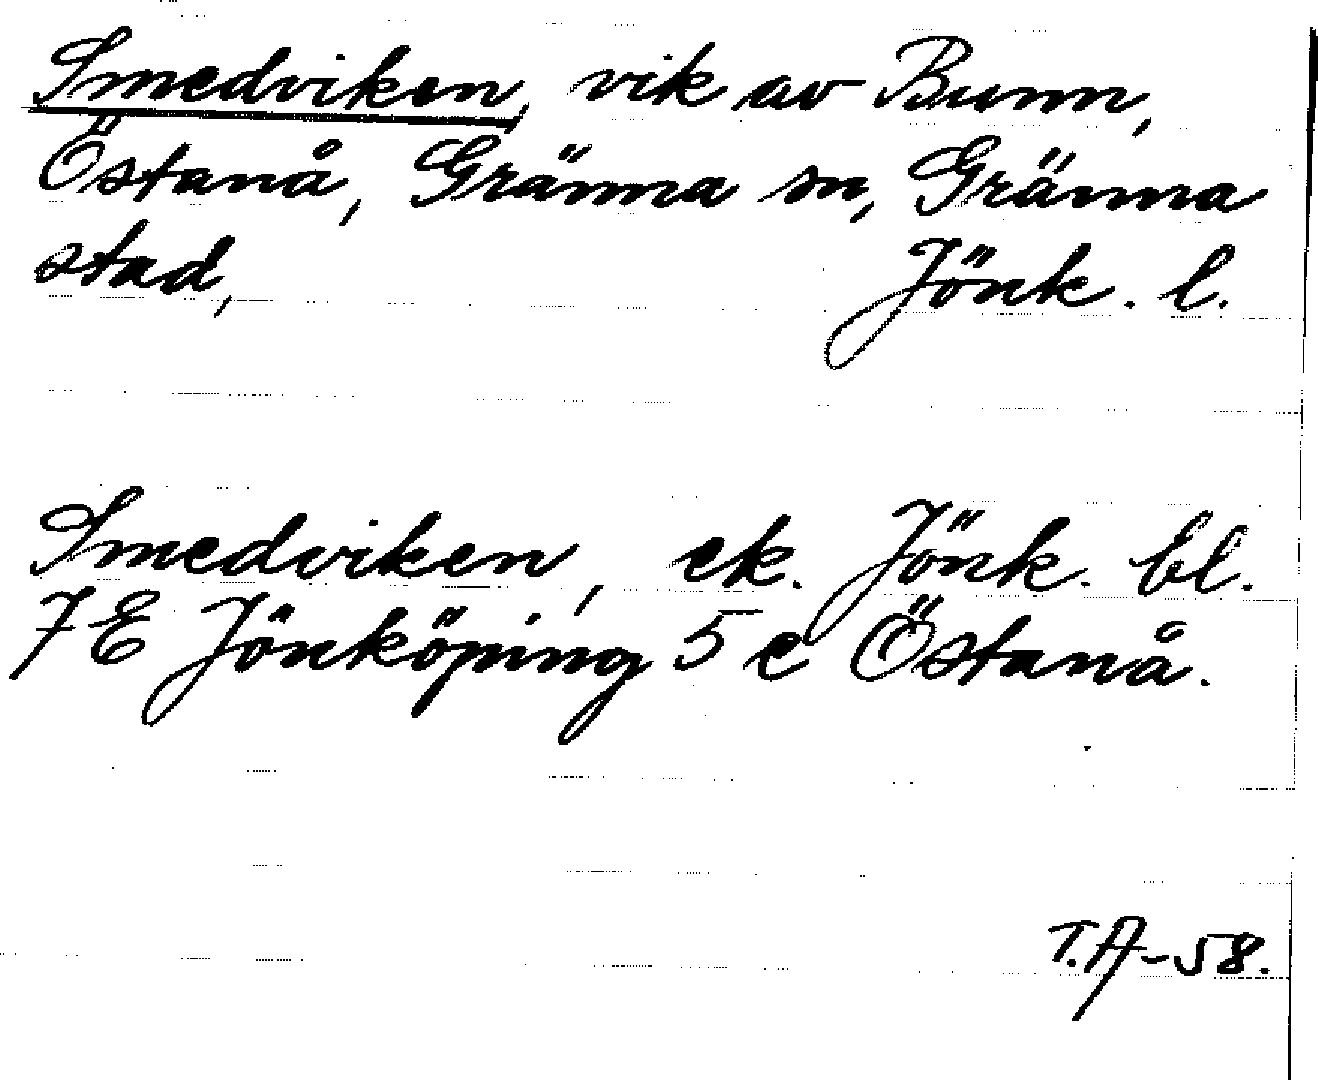 Smedviken, vik av Bunn,
Östanå, Gränna sn, Gränna
stad, Jönk. l.
Smedviken, ek. Jönk. bl.
7E Jönköping 5 e Östanå.
T.A-58.